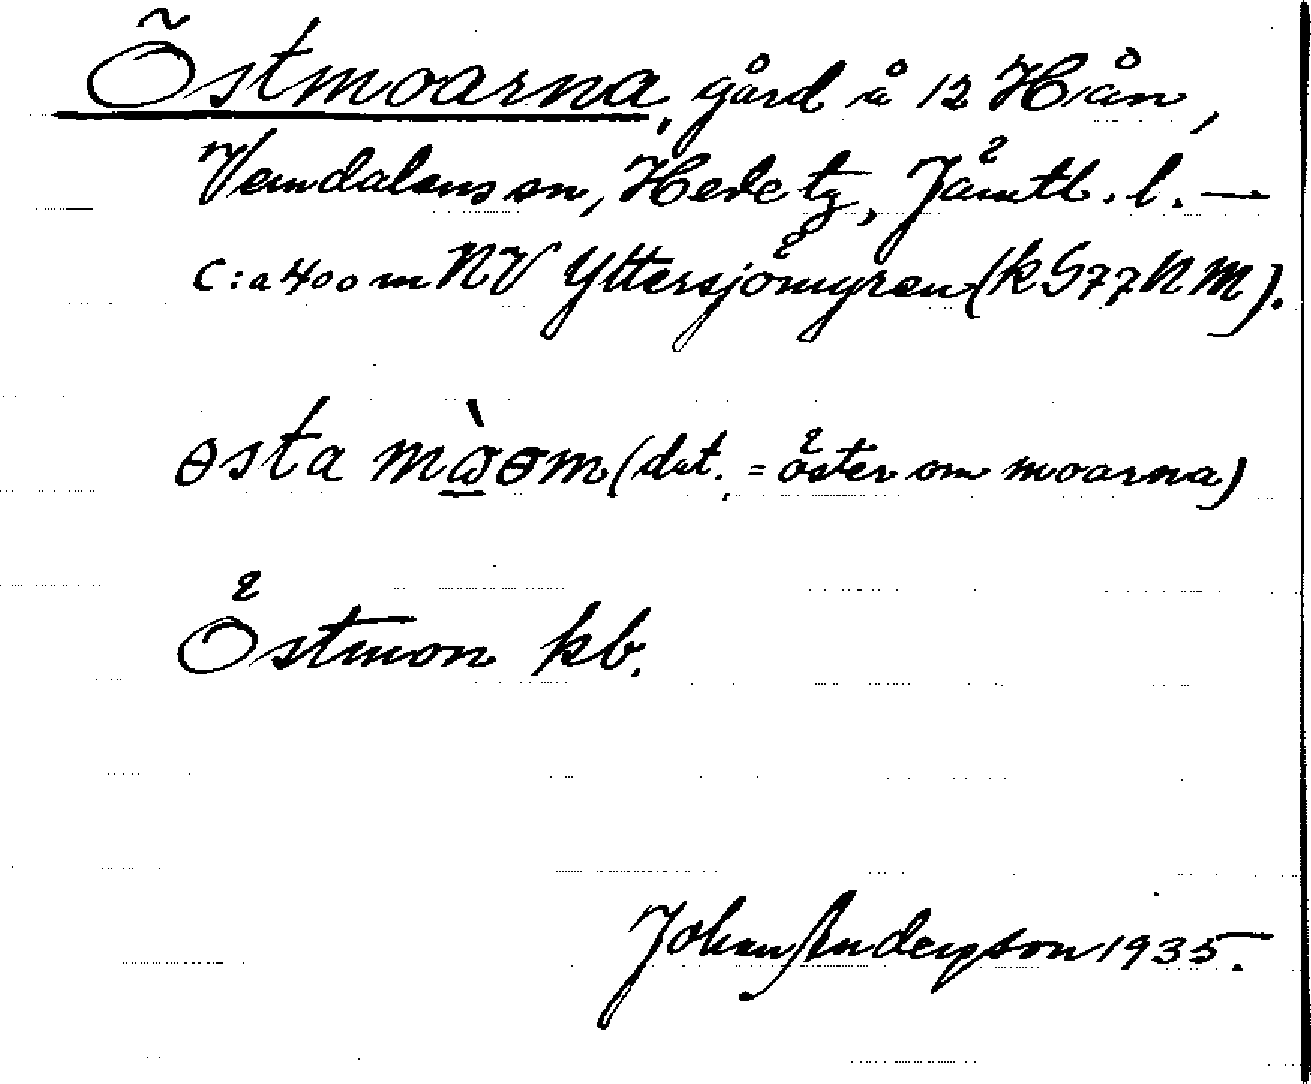 Östmoarna, gård å 12 Hån,
Vemdalens sn, Hede tg, Jämtl. l. —
c:a 400 m NV Yttersjömyren (k S77NM).
østa mòøm (dat. = öster om moarna)
Östmon kb.
Johan Anderson 1935.